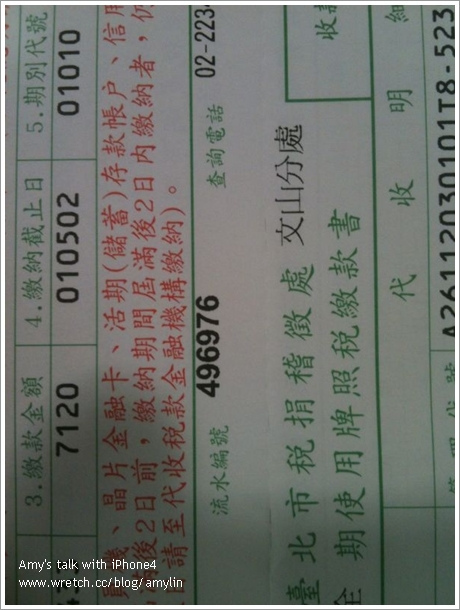 3.繳款金額 4.繳納截止日 5.期別代號
7120 010502 01010
機、晶片金融卡、活期(儲蓄)存款帳戶、信用
滿後2日前,繳納期間屆滿後2日內繳納者,仍
請至代收稅款金融機構繳納)。
流水編號 496976 查詢電話 02-223
臺北市稅捐稽徵處 文山分處 收款
全期使用牌照稅繳款書
代收明細
A26112030101T8-523
Amy's talk with iPhone4
www.wretch.cc/blog/amylin